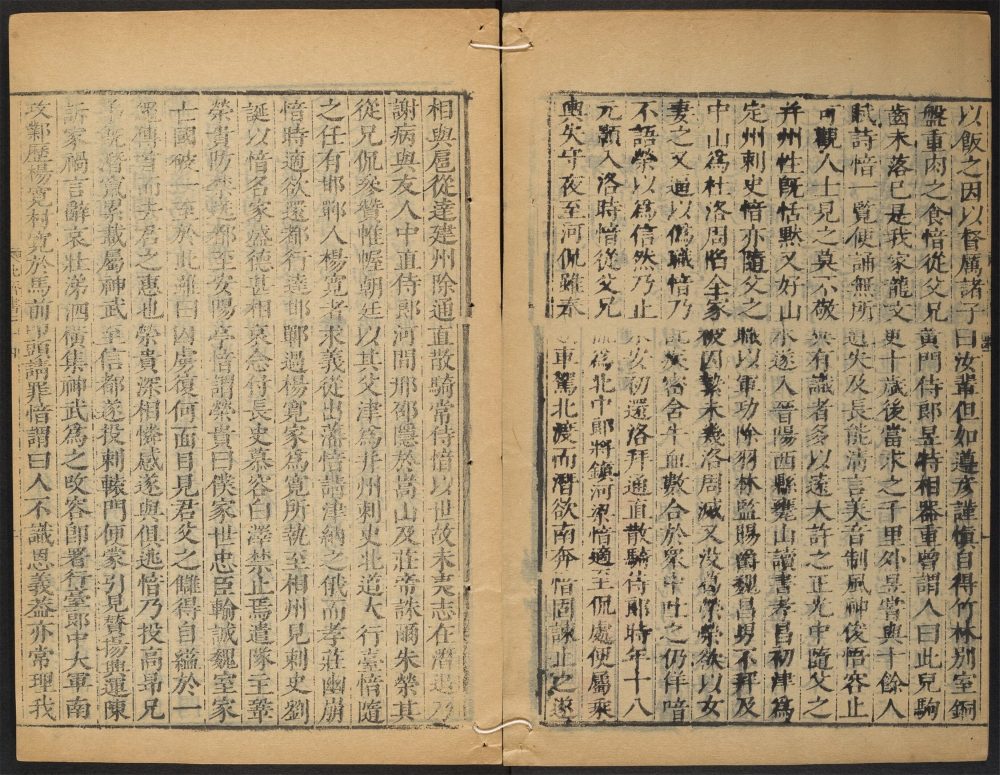 以飯之因以督厲諸子曰汝輩但如遵彥謹慎自得竹林別室銅
盤重肉之食愔從父兄黃門侍郎昱特相器重曾謂人曰此兒駒
齒未落已是我家龍文更十歲後當求之千里外昱嘗與十餘人
賦詩愔一覽便誦無所遺失及長能清言美音制風神俊悟容止
可觀人士見之莫不敬異有識者多以遠大許之正光中隨父之
并州性既恬默又好山水遂入晉陽西縣甕山讀書孝昌初津爲
定州刺史愔亦隨父之職以軍功除羽林監賜爵魏昌男不拜及
中山爲杜洛周陷全家被囚縶未幾洛周滅又沒葛榮榮欲以女
妻之又逼以僞職愔乃疾密含牛血數合於眾中吐之仍佯喑
不語榮以爲信然乃止永安初還洛拜通直散騎侍郎時年十八
元顥入洛時愔從父兄侃爲北中郎將鎮河梁愔適至侃處便屬乘
輿失守夜至河侃雖奉車駕北渡而潛欲南奔愔固諫止之遂
相與扈從達建州除通直散騎常侍愔以世故未夷志在潛退乃
謝病與友人中直侍郎河間邢邵隱於嵩山及莊帝誅爾朱榮其
從兄侃參贊帷幄朝廷以其父津爲并州刺史北道大行臺愔隨
之任有邯鄲人楊寬者求義從出藩愔請津納之俄而孝莊幽崩
愔時適欲還都行達邯鄲過楊寬家爲寬所執至相州見刺史劉
誕以愔名家盛德甚相哀念付長史慕容白澤禁止焉遣隊主鞏
榮貴防禁送都至安陽亭愔謂榮貴曰僕家世忠臣輸誠魏室家
亡國破一至於此雖曰囚虜復何面目見君父之讎得自縊於一
繩傳首而去君之惠也榮貴深相憐感遂與俱逃愔乃投高昂兄
弟旣潛竄累載屬神武至信都遂投刺轅門便蒙引見贊揚興運陳
訴家禍言辭哀壯涕泗橫集神武爲之改容卽署行臺郎中大軍南
攻鄴歷楊寬村寬於馬前叩頭請罪愔謂曰人不識恩義蓋亦常理我